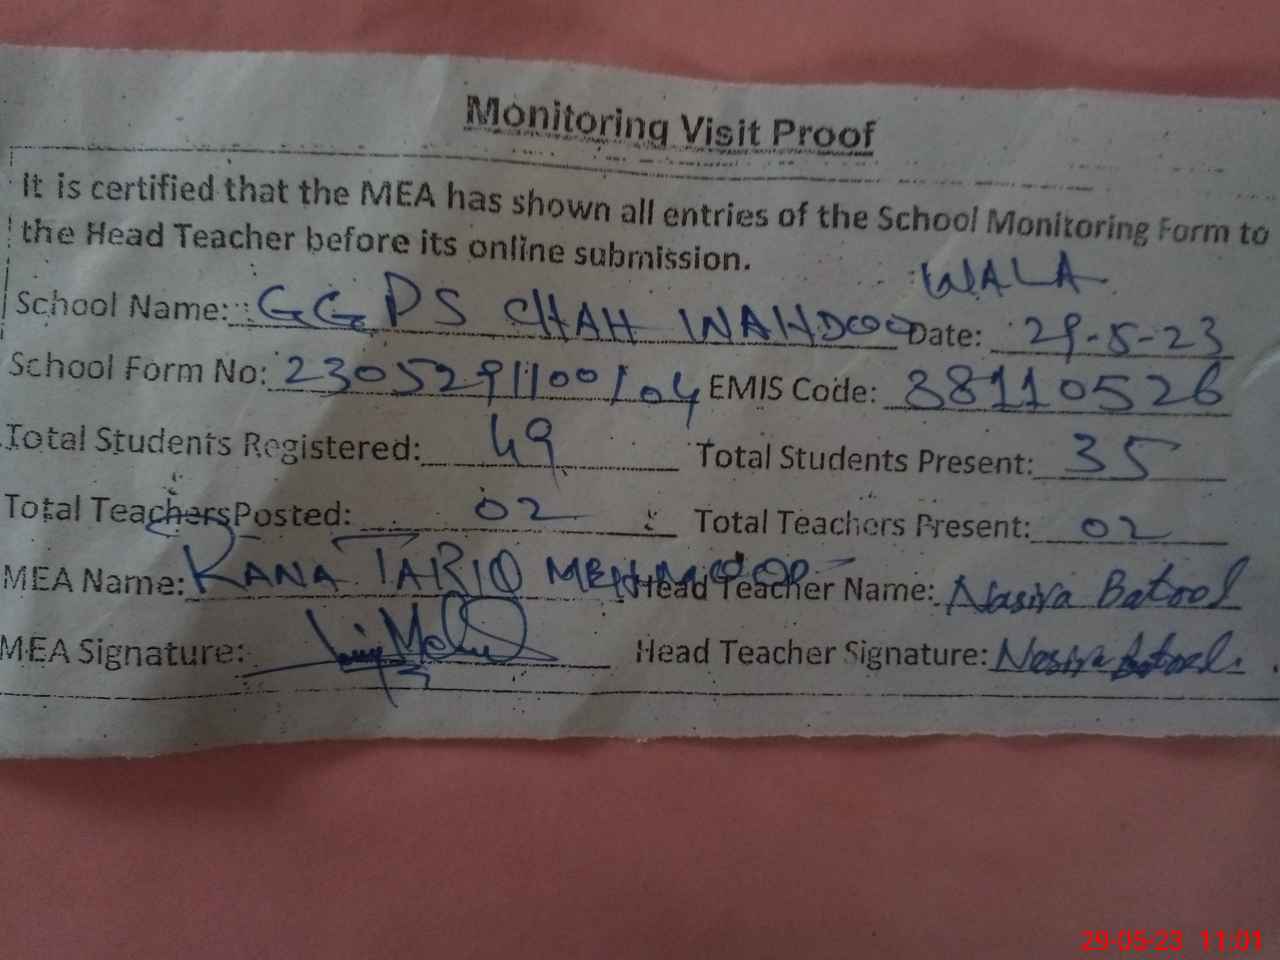 Monitoring Visit Proof
It is certified that the MEA has shown all entries of the School Monitoring Form to
the Head Teacher before its online submission.
School Name: GGPS CHAH WAHDOO WALA Date: 29-5-23
School Form No: 2305291100104 EMIS Code: 38110526
Total Students Registered: 49 Total Students Present: 35
Total Teachers Posted: 02 Total Teachers Present: 02
MEA Name: RANA TARIQ MEHMOOD Head Teacher Name: Nasira Batool
MEA Signature: Head Teacher Signature: Nasira Batool
29-05-23 11:01